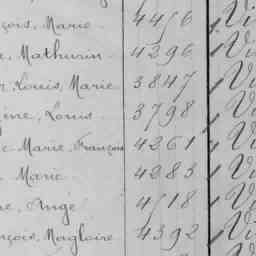 çois, Marie 4456 Vi
e, Mathurin 4296 Vi
r, Louis, Marie 3847 Vi
gène, Louis 3798 Vi
e Marie, François 4261 Vi
Marie 4283 Vi
e, Ange 4518 Vi
nçois, Magloire 4392 Vi